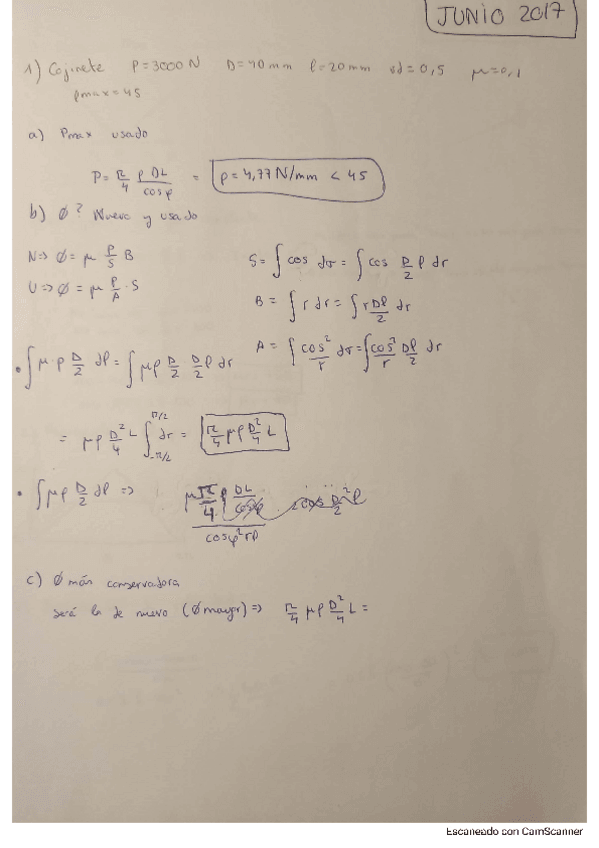 JUNIO 2017
1) Cojinete P=3000 N D=40mm l=20mm vd=0,5 μ=0,1
pmax=45
a) Pmax usado
P= π/4 p DL/cosφ = p=4,77 N/mm < 45
b) Ø? Nuevo y usado
N=> Ø= μ P/S B
S= ∫cos dσ = ∫cos D/2 l dr
U=> Ø= μ P/A · S
B= ∫r dr = ∫r Dl/2 dr
A= ∫cos²/r dσ = ∫cos²/r Dl/2 dr
• ∫μ·p D/2 dl = ∫μp D/2 D/2 l dr
= μp D²/4 L ∫ π/2 -π/2 dr = π/4 μp D²/4 L
• ∫μp D/2 dl =>
cosφ² rl
c) Ø más conservadora
será la de nuevo (Ø mayor) => π/4 μp D²/4 L =
Escaneado con CamScanner